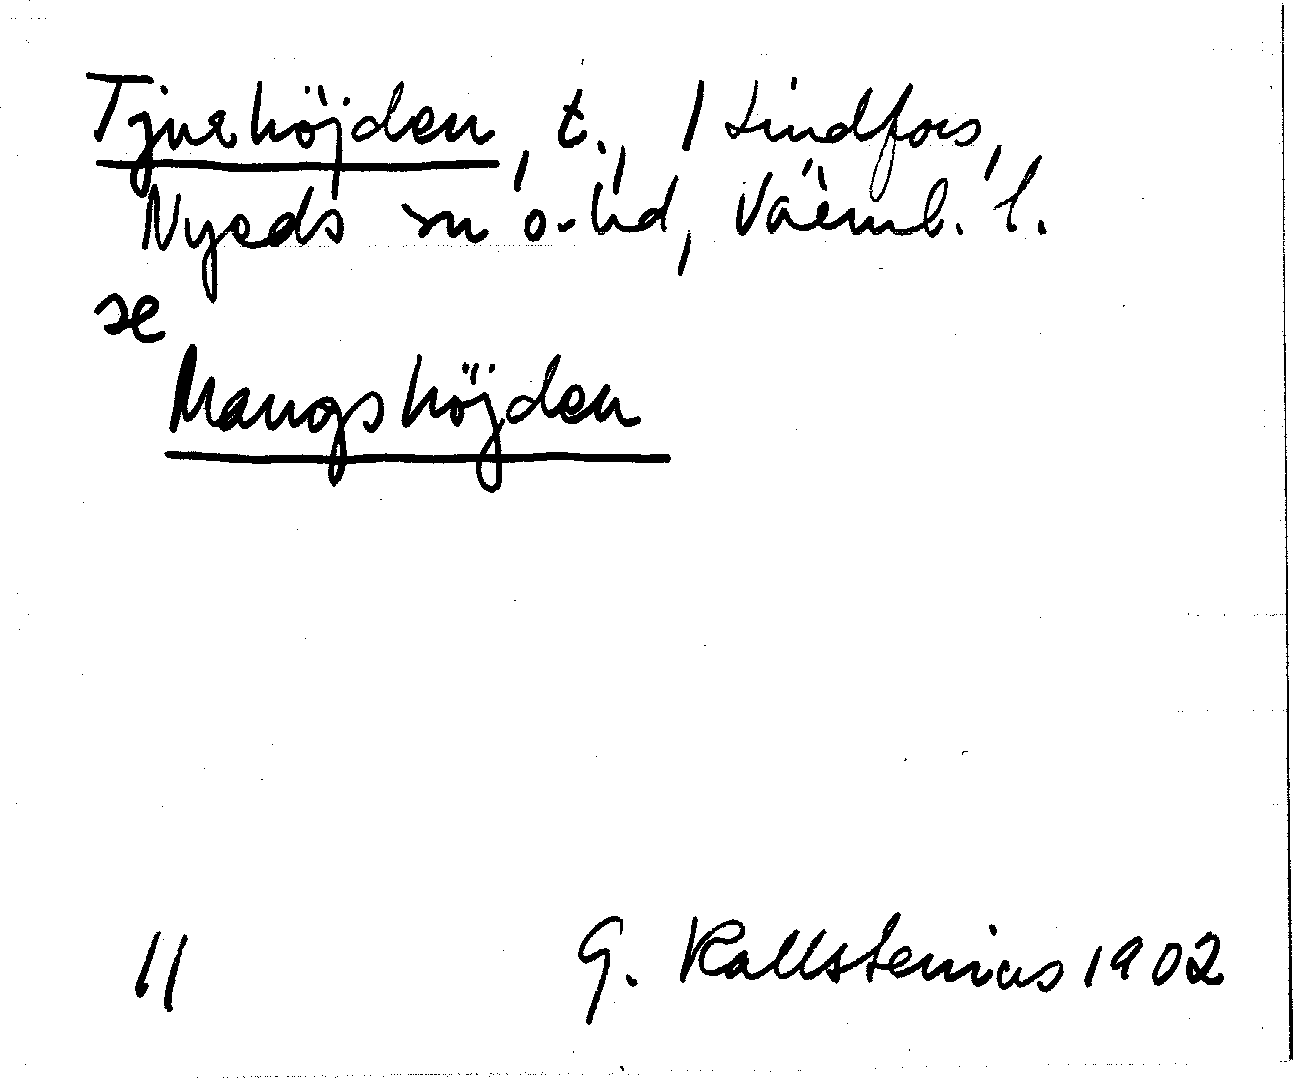 Tjurhöjden, t., 1 Lindfors,
Nyeds sn o. hd, Värml. l.
se
Mangshöjden
11 G. Kallstenius 1902